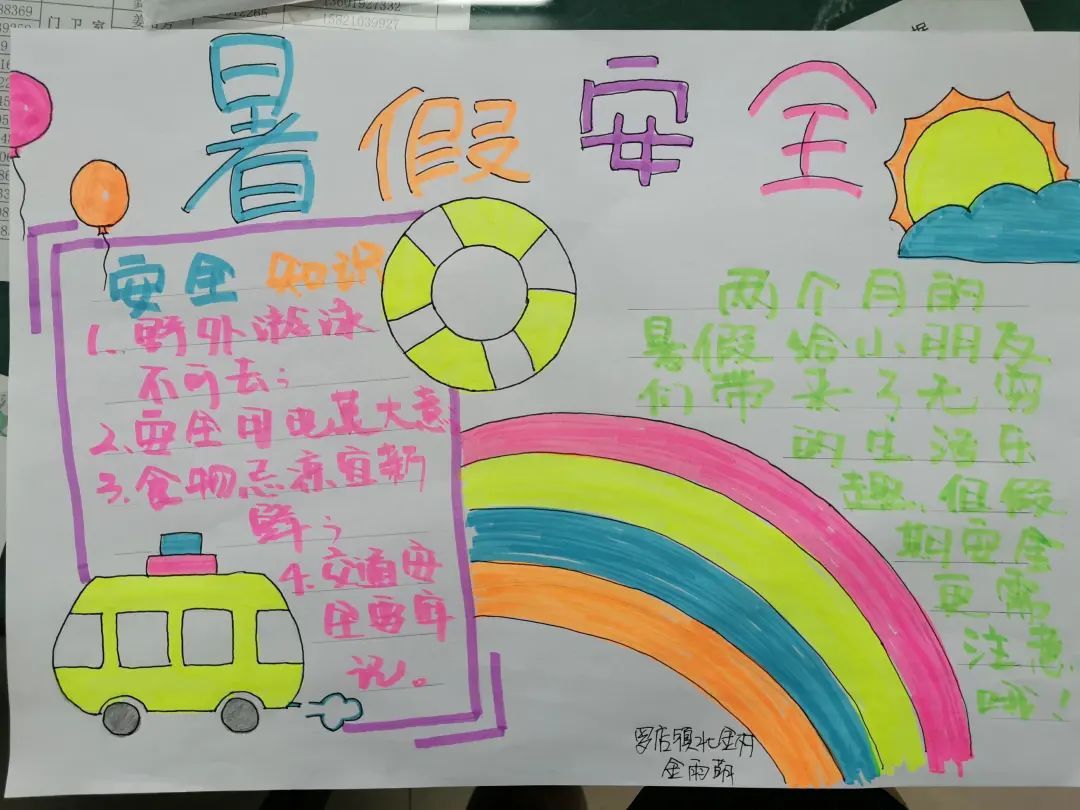 88369
门卫室
13691927332
15821039927
暑假安全
安全知识
1、野外游泳
不可去；
2、安全用电莫大意
3、食物忌凉宜新
鲜；
4、交通安
全要牢
记。
两个月的
暑假给小朋友
们带来了无穷
的生活乐
趣，但假
期安全
更需
注意
哦！
罗店镇北金村
金雨萌